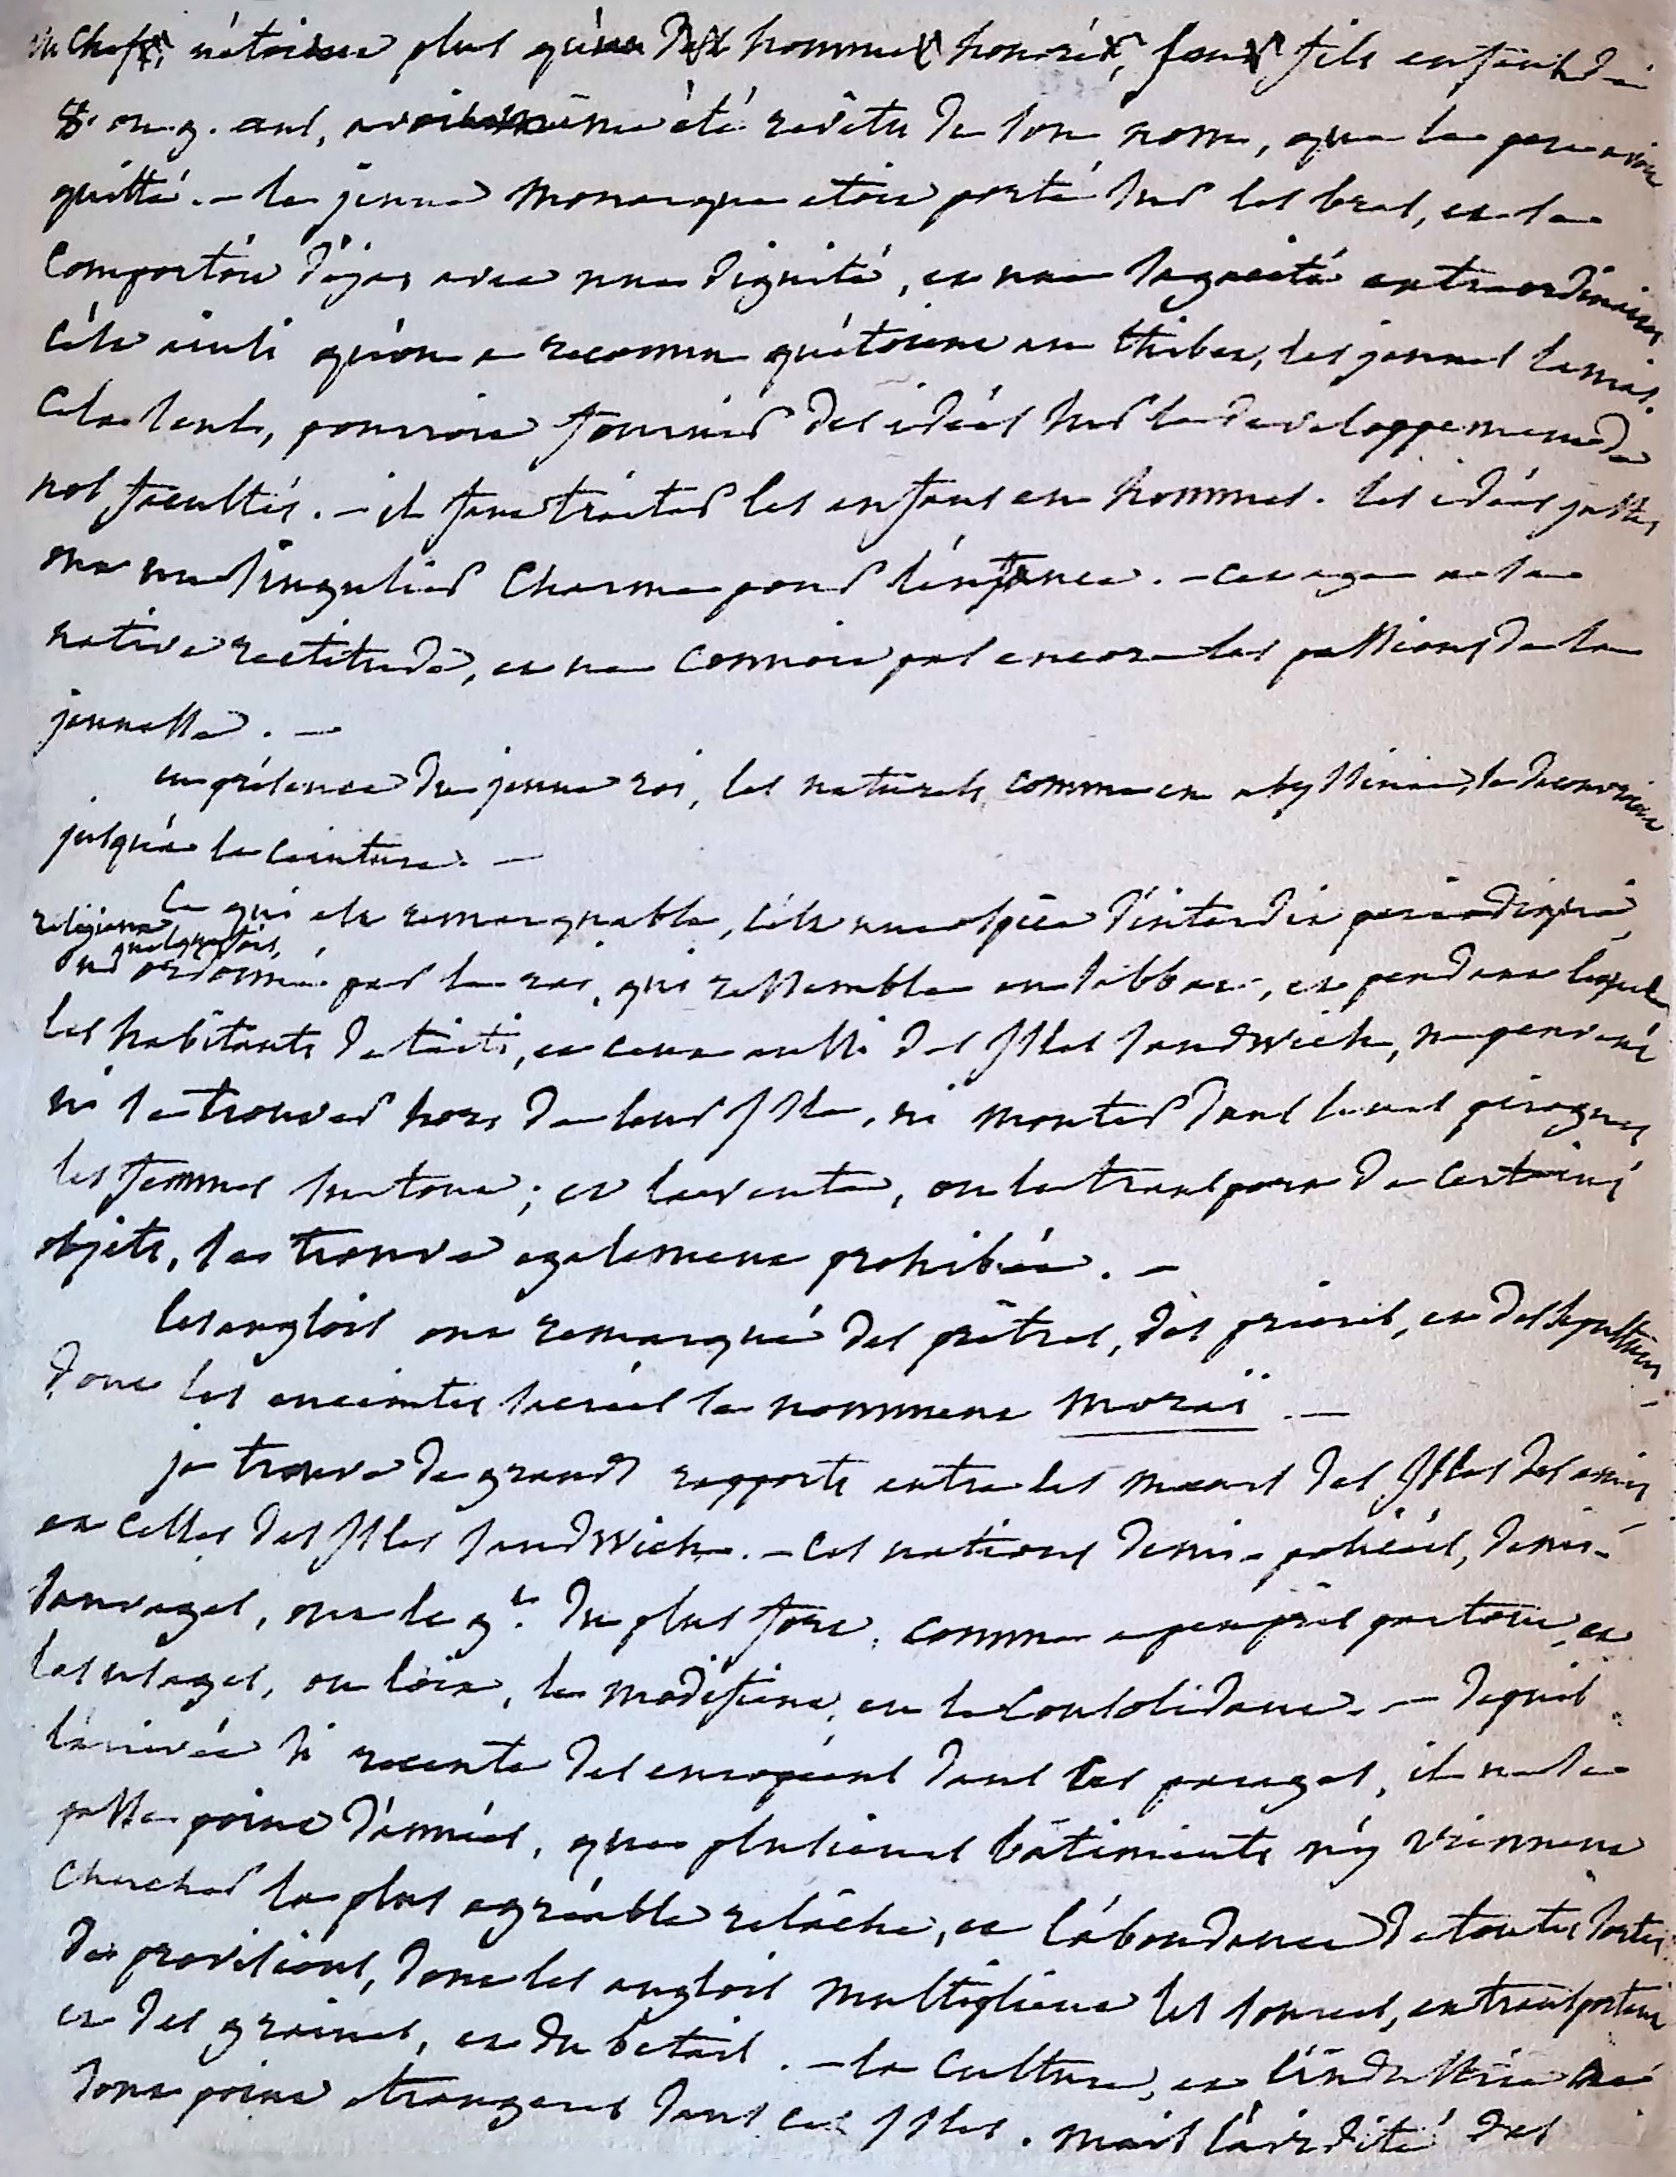 un chef, n'étoient plus qu'un des hommes honorés, son fils enfant de
8. ou 9. ans, avoit même été revêtu de son nom, que le pere avoit
quitté. – le jeune monarque etoit porté sur les bras, et se
comportoit déja, avec une dignité, et une sagacité extraordinaires
c'est ainsi qu'on a reconnu qu'étoient au thibet, les jeunes lamas.
cela seul, pourroit fournir des idées sur le developpement de
nos facultés. – il faut traiter les enfans en hommes. les idées justes
ont un singulier charme pour l'enfance. – cet age a sa
native rectitude, et ne connoit pas encore les passions de la
jeunesse. –
en présence du jeune roi, les naturels, comme en abyssinie, se decouvrent
jusqu'à la ceinture. –
ce qui est remarquable, c'est une espèce d'interdit periodique,
religieux
quelquefois,
ordonné par le roi, qui ressemble au sabbat, et pendant lequel
les habitants de taiti, et ceux aussi des isles sandwich, ne peuvent
ni se trouver hors de leur isle, ni monter dans leurs pirogues
les femmes surtout; et la vente, ou le transport de certains
objets, se trouve egalement prohibée. –
les anglois ont remarqué des prêtres, des prieres, et des sepultures
dont les enceintes sacrées se nomment moraï –
je trouve de grands rapports entre les mœurs des isles des amis
et celles des isles sandwich. – ces nations demi-policées, demi-
sauvages, ont le g.t du plus fort, comme a peu près partout, et
les usages, ou loix, le modifient, en le consolidant. – depuis
l'arrivée si recente des européens dans ces parages, il ne se
passe point d'années, que plusieurs bâtiments n'y viennent
chercher la plus agréable relâche, et l'abondance de toutes sortes
de provisions, dont les anglois multiplient les sources, en transportant
et des graines, et du betail. – la culture, et l'industrie ne
sont point etrangeres dans ces isles. mais l'avidité des